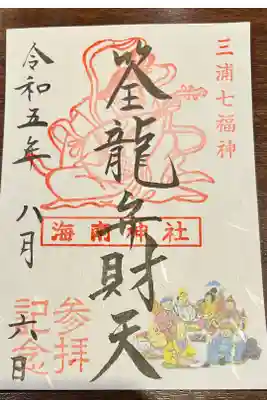 三浦七福神
筌龍弁財天
海南神社
令和五年八月六日
参拝
記念